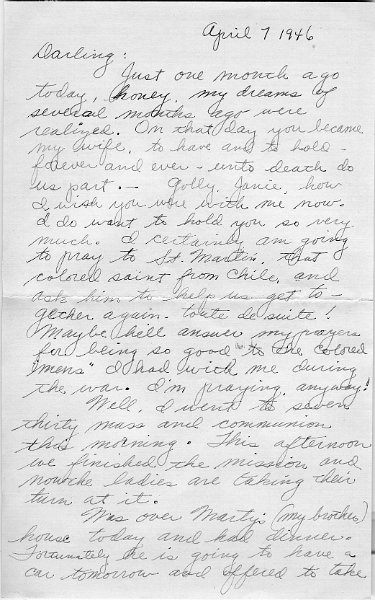 April 7 1946
Darling:
Just one month ago
today, honey, my dreams of
several months ago were
realized. On that day you became
my wife, to have and to hold -
forever and ever - unto death do
us part. — Golly, Janie, how
I wish you were with me now.
I do want to hold you so very
much. I certainly am going
to pray to St. Martin, that
colored saint from Chile, and
ask him to help us get to-
gether again - toute de suite!
Maybe he'll answer my prayers
for being so good "to the colored
mens" I had with me during
the war. I'm praying, anyway!
Well, I went to seven
thirty mass and communion
this morning. This afternoon
we finished the mission and
now the ladies are taking their
turn at it.
Was over Marty's (my brother)
house today and had dinner.
Fortunately he is going to have a
car tomorrow and offered to take